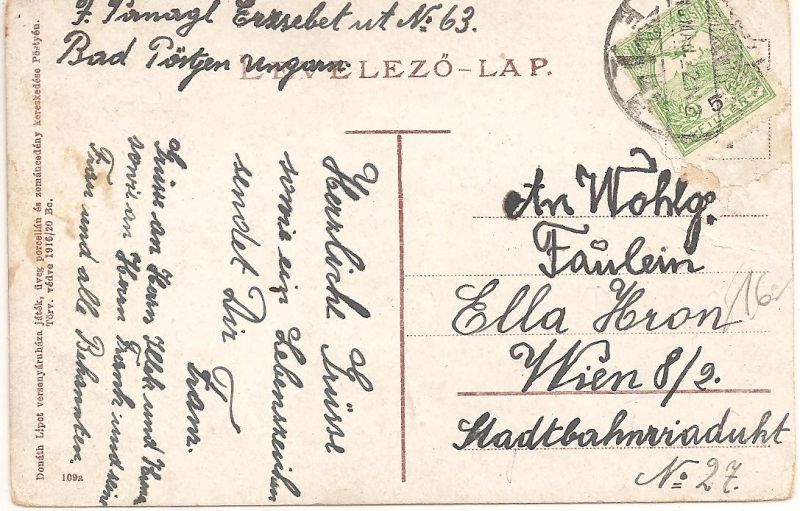 F. Panagl Erzsebet ut No 63.
Bad Pöstjen Ungarn
LEVELEZŐ-LAP.
5
FILLÉR
An Wohlg.
Fäulein
Ella Hron
Wien 8/2.
Stadtbahnviadukt
No 27.
16
Herrliche Grüsse
sowie ein Lebenszeichen
sendet Dir
Franz.
Grüsse an Herrn Illek und Frau
sowie an Herrn Frank und seine
Frau und alle Bekannten.
Donáth Lipot versenyáruháza játék, üveg porcellán és zománcedény kereskedése Pöstyén.
Törv. védve 1916/20 Bc.
109a